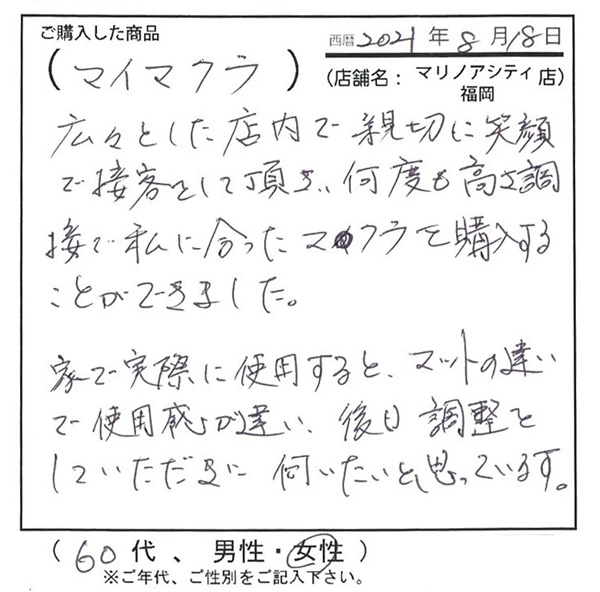 ご購入した商品
西暦 2021 年 8 月 18 日
(マイマクラ)
(店舗名：マリノアシティ福岡 店)
広々とした店内で親切に笑顔
で接客をして頂き、何度も高さ調
接で私に合ったマクラを購入する
ことができました。
家で実際に使用すると、マットの違い
で使用感が違い、後日調整を
していただきに伺いたいと思っています。
(60代、男性・女性)
※ご年代、ご性別をご記入下さい。